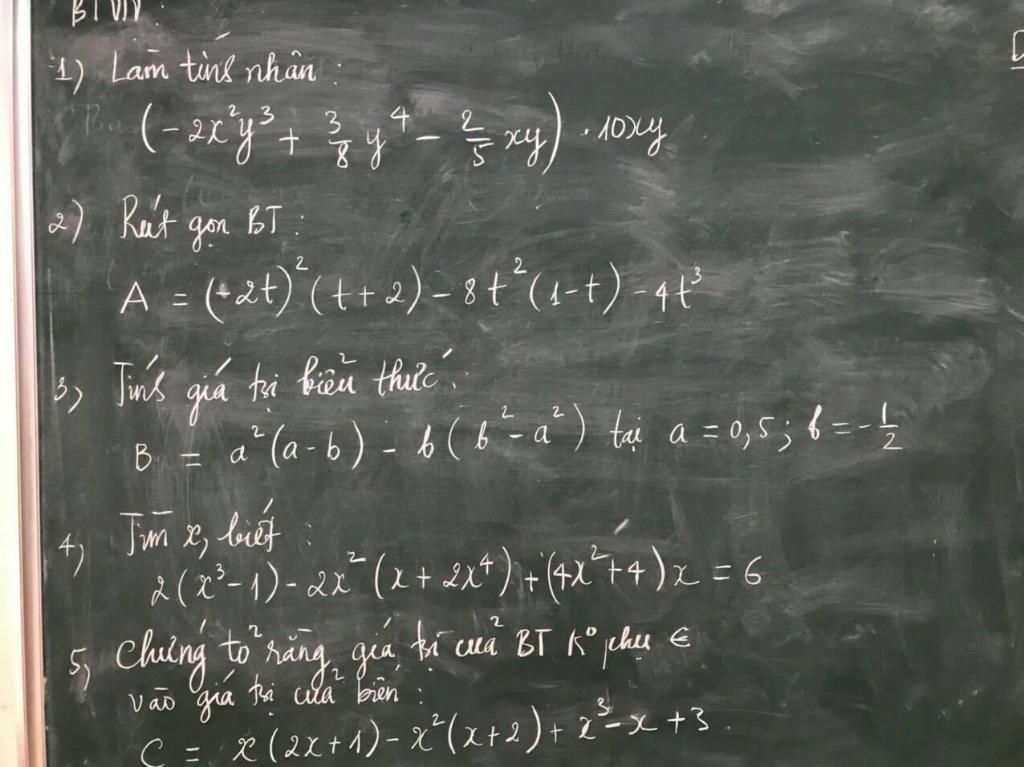 BTVN:
1) Làm tính nhân:
(-2x²y³ + 3/8 y⁴ - 2/5 xy) · 10xy
2) Rút gọn BT:
A = (-2t)² (t+2) - 8t² (1-t) - 4t³
3) Tính giá trị biểu thức:
B = a² (a-b) - b (b² - a²) tại a = 0,5; b = -1/2
4) Tìm x, biết:
2(x³-1) - 2x² (x + 2x⁴) + (4x²+4)x = 6
5) Chứng tỏ rằng giá trị của BT k° phụ €
vào giá trị của biến:
C = x(2x+1) - x²(x+2) + x³ - x + 3